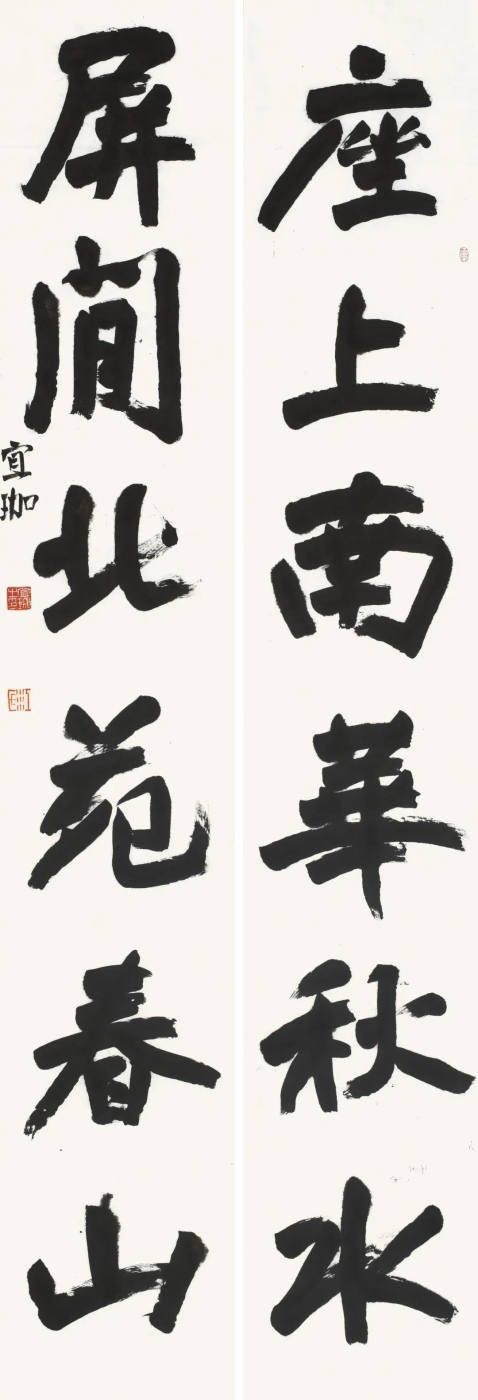 座上南華秋水
屏間北苑春山
宜珈